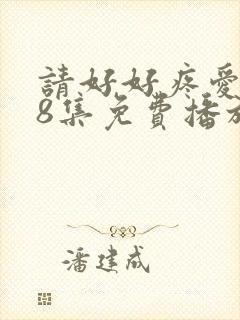 請好好疼愛
8集免費播放
潘建成